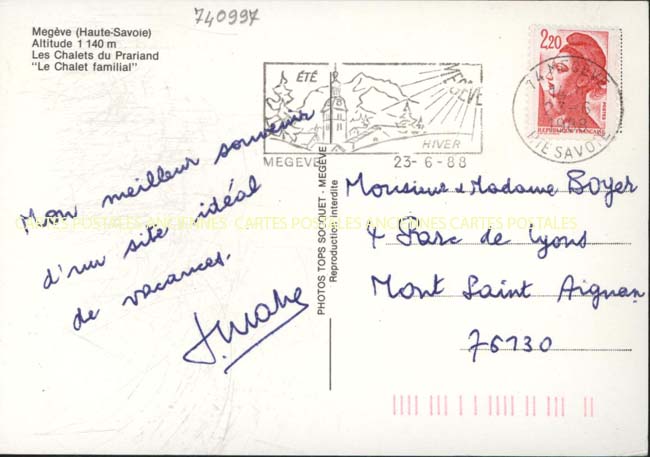 740997
Megève (Haute-Savoie)
Altitude 1 140 m
Les Chalets du Prariand
"Le Chalet familial"
ÉTÉ
MEGEVE
HIVER
MEGEVE 23-6-88
2,20
RÉPUBLIQUE FRANÇAISE
74 MEGEVE
1988
HTE SAVOIE
Mon meilleur souvenir
d'un site idéal
de vacances.
PHOTOS TOPS SOCQUET - MEGÈVE
Reproduction interdite
Monsieur & Madame BOYER
4 Parc de Lyons
Mont Saint Aignan
76130
CARTES POSTALES ANCIENNES CARTES POSTALES